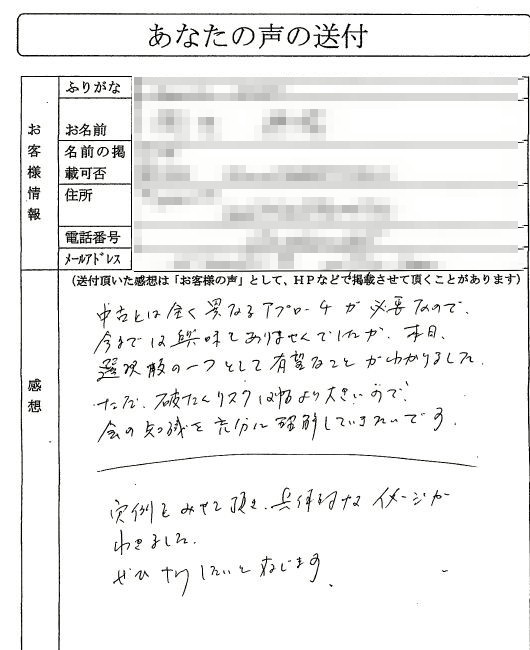 あなたの声の送付
ふりがな
お名前
名前の掲
載可否
住所
電話番号
メールアドレス
お客様情報
(送付頂いた感想は「お客様の声」として、HPなどで掲載させて頂くことがあります)
感想
中古とは全く異なるアプローチが必要なので、
今までは興味ありませんでしたが、本日、
選択肢の一つとして有望なことがわかりました。
ただ、破たんリスクは より大きいので、
会の知識を充分に理解していきたいです。
実例もみせて頂き、具体的なイメージが
わきました。
ぜひ したいと存じます。